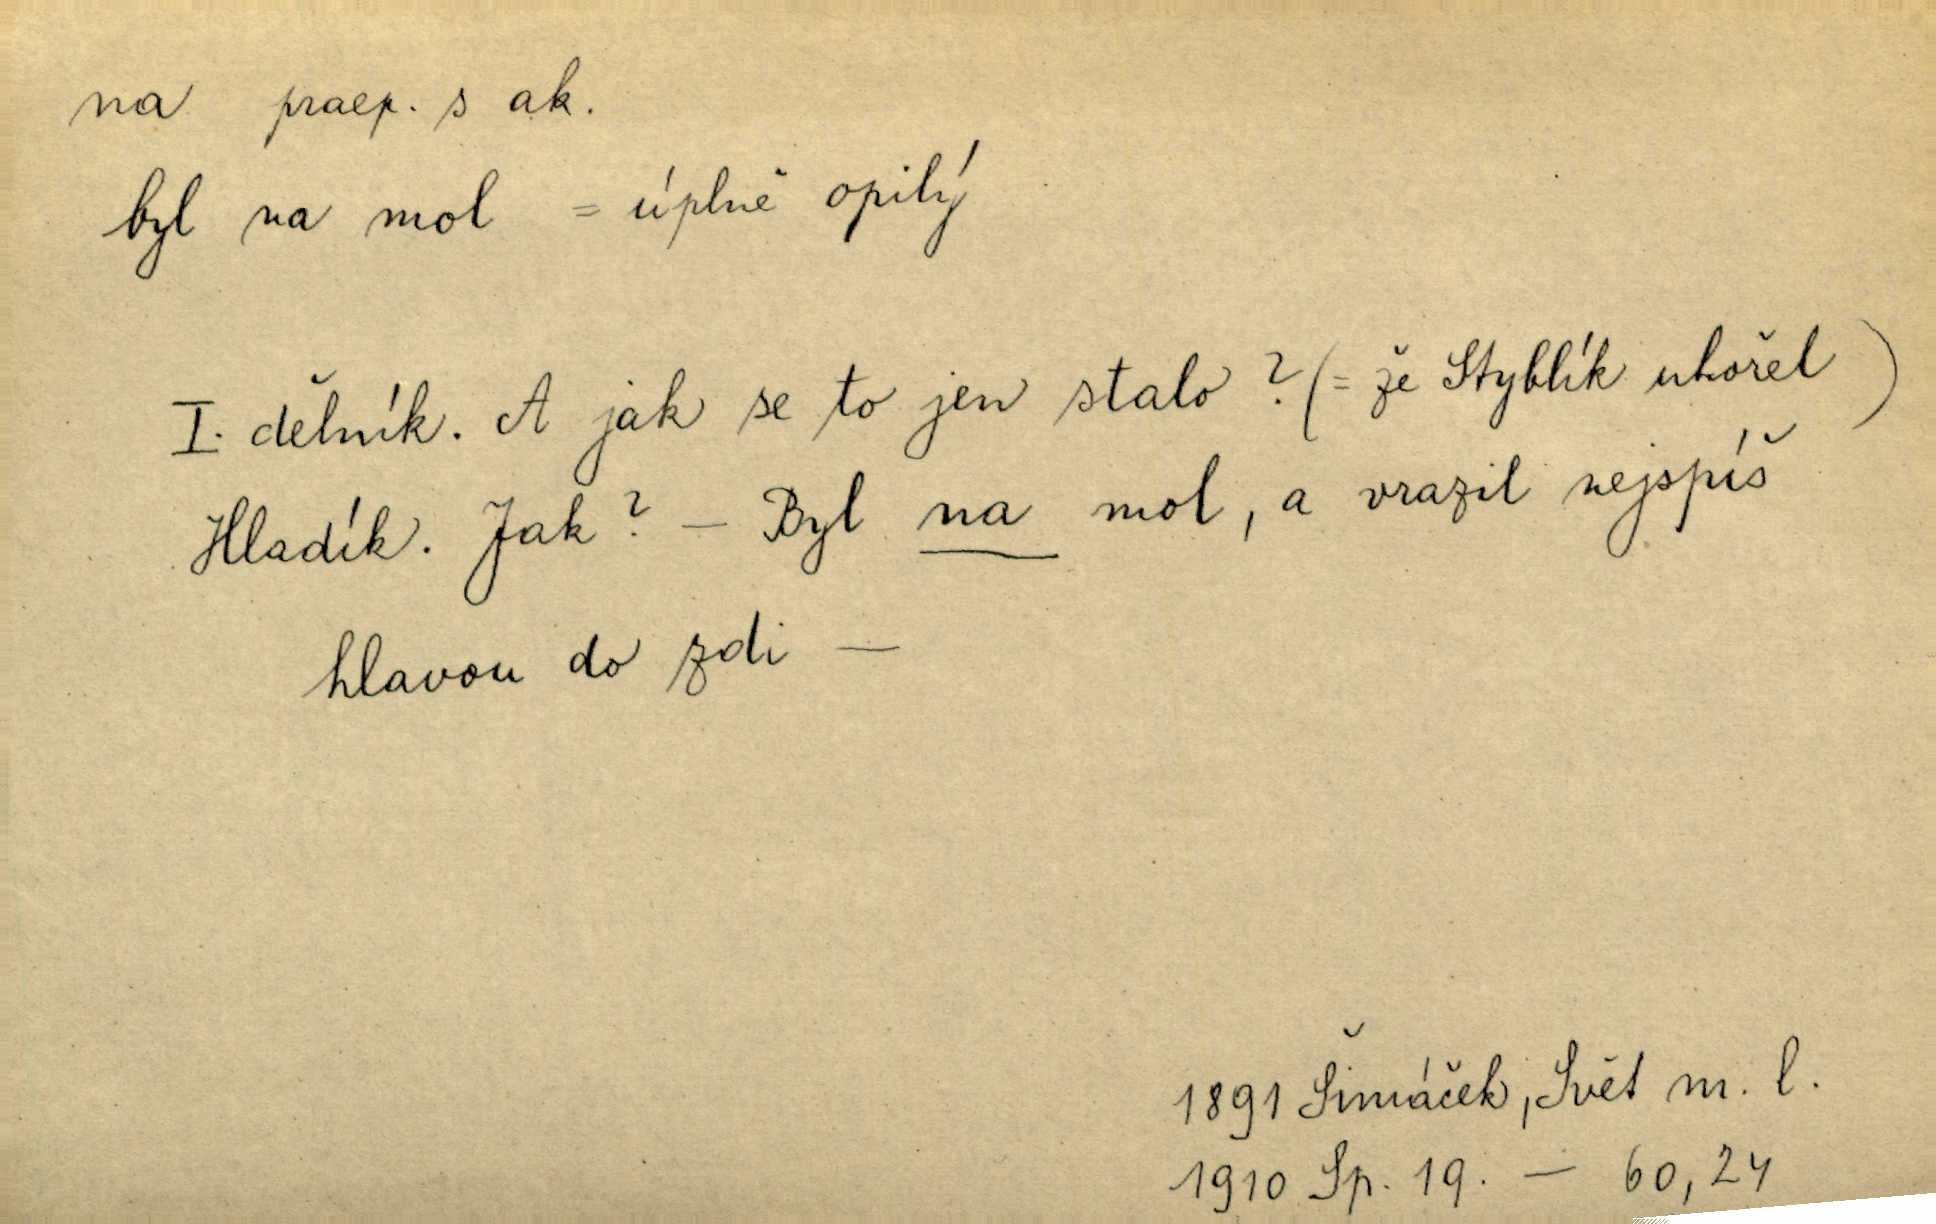 na praep. s ak.
byl na mol = úplně opilý
I. dělník. A jak se to jen stalo? (= že Styblík uhořel)
Hladík. Jak? — Byl na mol, a vrazil nejspíš
hlavou do zdi —
1891 Šimáček, Svět m. l.
1910 Sp. 19. — 60,24